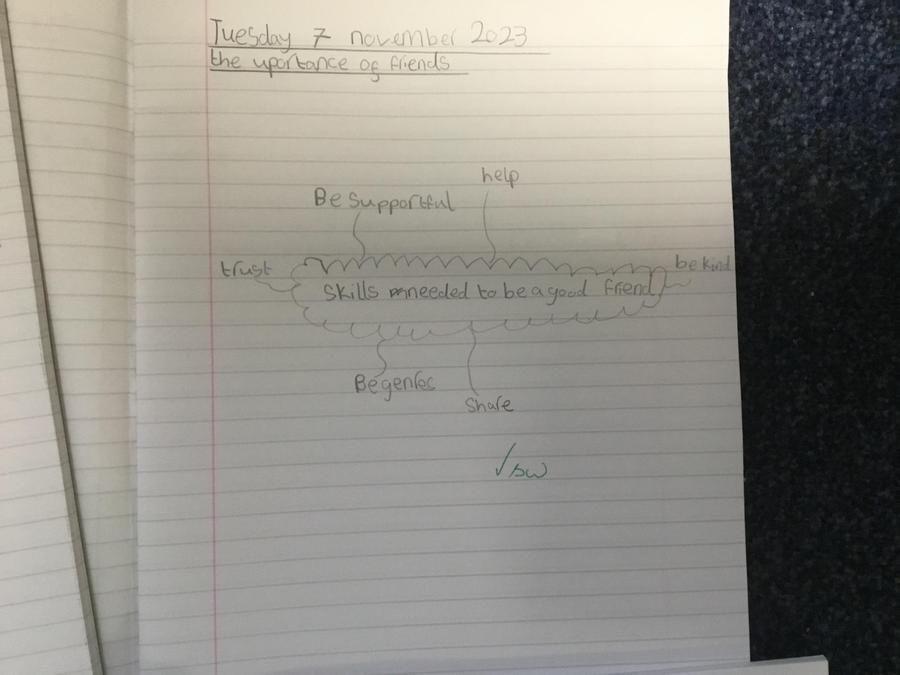 Tuesday 7 november 2023
the uportance of friends
help
Be supportful
trust
be kind
Skills needed to be a good friend
Share